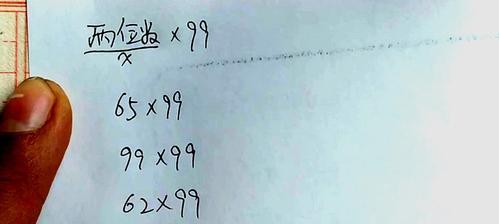 两位数 × 99
x
65×99
99×99
62×99